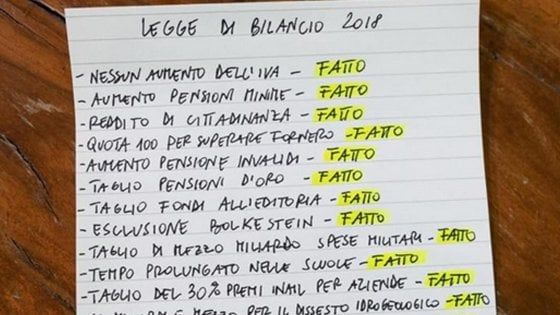 LEGGE DI BILANCIO 2018
- NESSUN AUMENTO DELL'IVA - FATTO
- AUMENTO PENSIONI MINIME - FATTO
- REDDITO DI CITTADINANZA - FATTO
- QUOTA 100 PER SUPERARE FORNERO - FATTO
- AUMENTO PENSIONE INVALIDI - FATTO
- TAGLIO PENSIONI D'ORO - FATTO
- TAGLIO FONDI ALL'EDITORIA - FATTO
- ESCLUSIONE BOLKESTEIN - FATTO
- TAGLIO DI MEZZO MILIARDO SPESE MILITARI - FATTO
- TEMPO PROLUNGATO NELLE SCUOLE - FATTO
- TAGLIO DEL 30% PREMI INAIL PER AZIENDE - FATTO
MEZZO PER IL DISSESTO IDROGEOLOGICO - FATTO